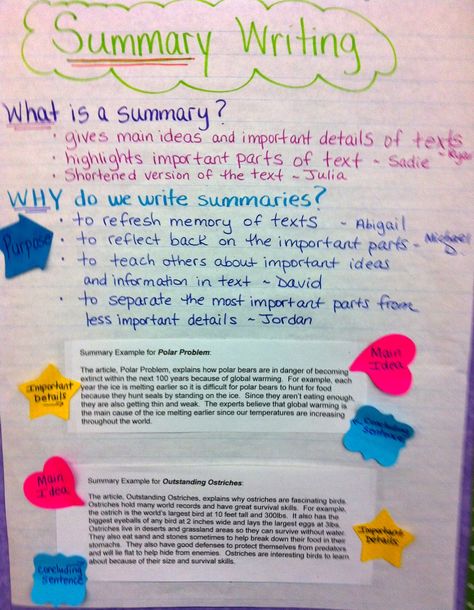 Summary Writing
What is a summary?
• gives main ideas and important details of texts ~ Ryan
• highlights important parts of text ~ Sadie
• Shortened version of the text ~ Julia
WHY do we write summaries?
Purpose
• to refresh memory of texts ~ Abigail
• to reflect back on the important parts ~ Michael D.
• to teach others about important ideas
and information in text ~ David
• to separate the most important parts from
less important details ~ Jordan
Summary Example for Polar Problem:
The article, Polar Problem, explains how polar bears are in danger of becoming
extinct within the next 100 years because of global warming. For example, each
year the ice is melting earlier so it is difficult for polar bears to hunt for food
because they hunt seals by standing on the ice. Since they aren't eating enough,
they are also getting thin and weak. The experts believe that global warming is
the main cause of the ice melting earlier since our temperatures are increasing
throughout the world.
Main
Idea
Important
Details
Concluding
Sentence
Main
Idea
Summary Example for Outstanding Ostriches:
The article, Outstanding Ostriches, explains why ostriches are fascinating birds.
Ostriches hold many world records and have great survival skills. For example,
the ostrich is the world's largest bird at 10 feet tall and 300lbs. It also has the
biggest eyeballs of any bird at 2 inches wide and lays the largest eggs at 3lbs.
Ostriches live in deserts and grassland areas so they can survive without water.
They also eat sand and stones sometimes to help break down their food in their
stomachs. They also have good defenses to protect themselves from predators
and will lie flat to help hide from enemies. Ostriches are interesting birds to learn
about because of their size and survival skills.
Important
Details
Concluding
Sentence